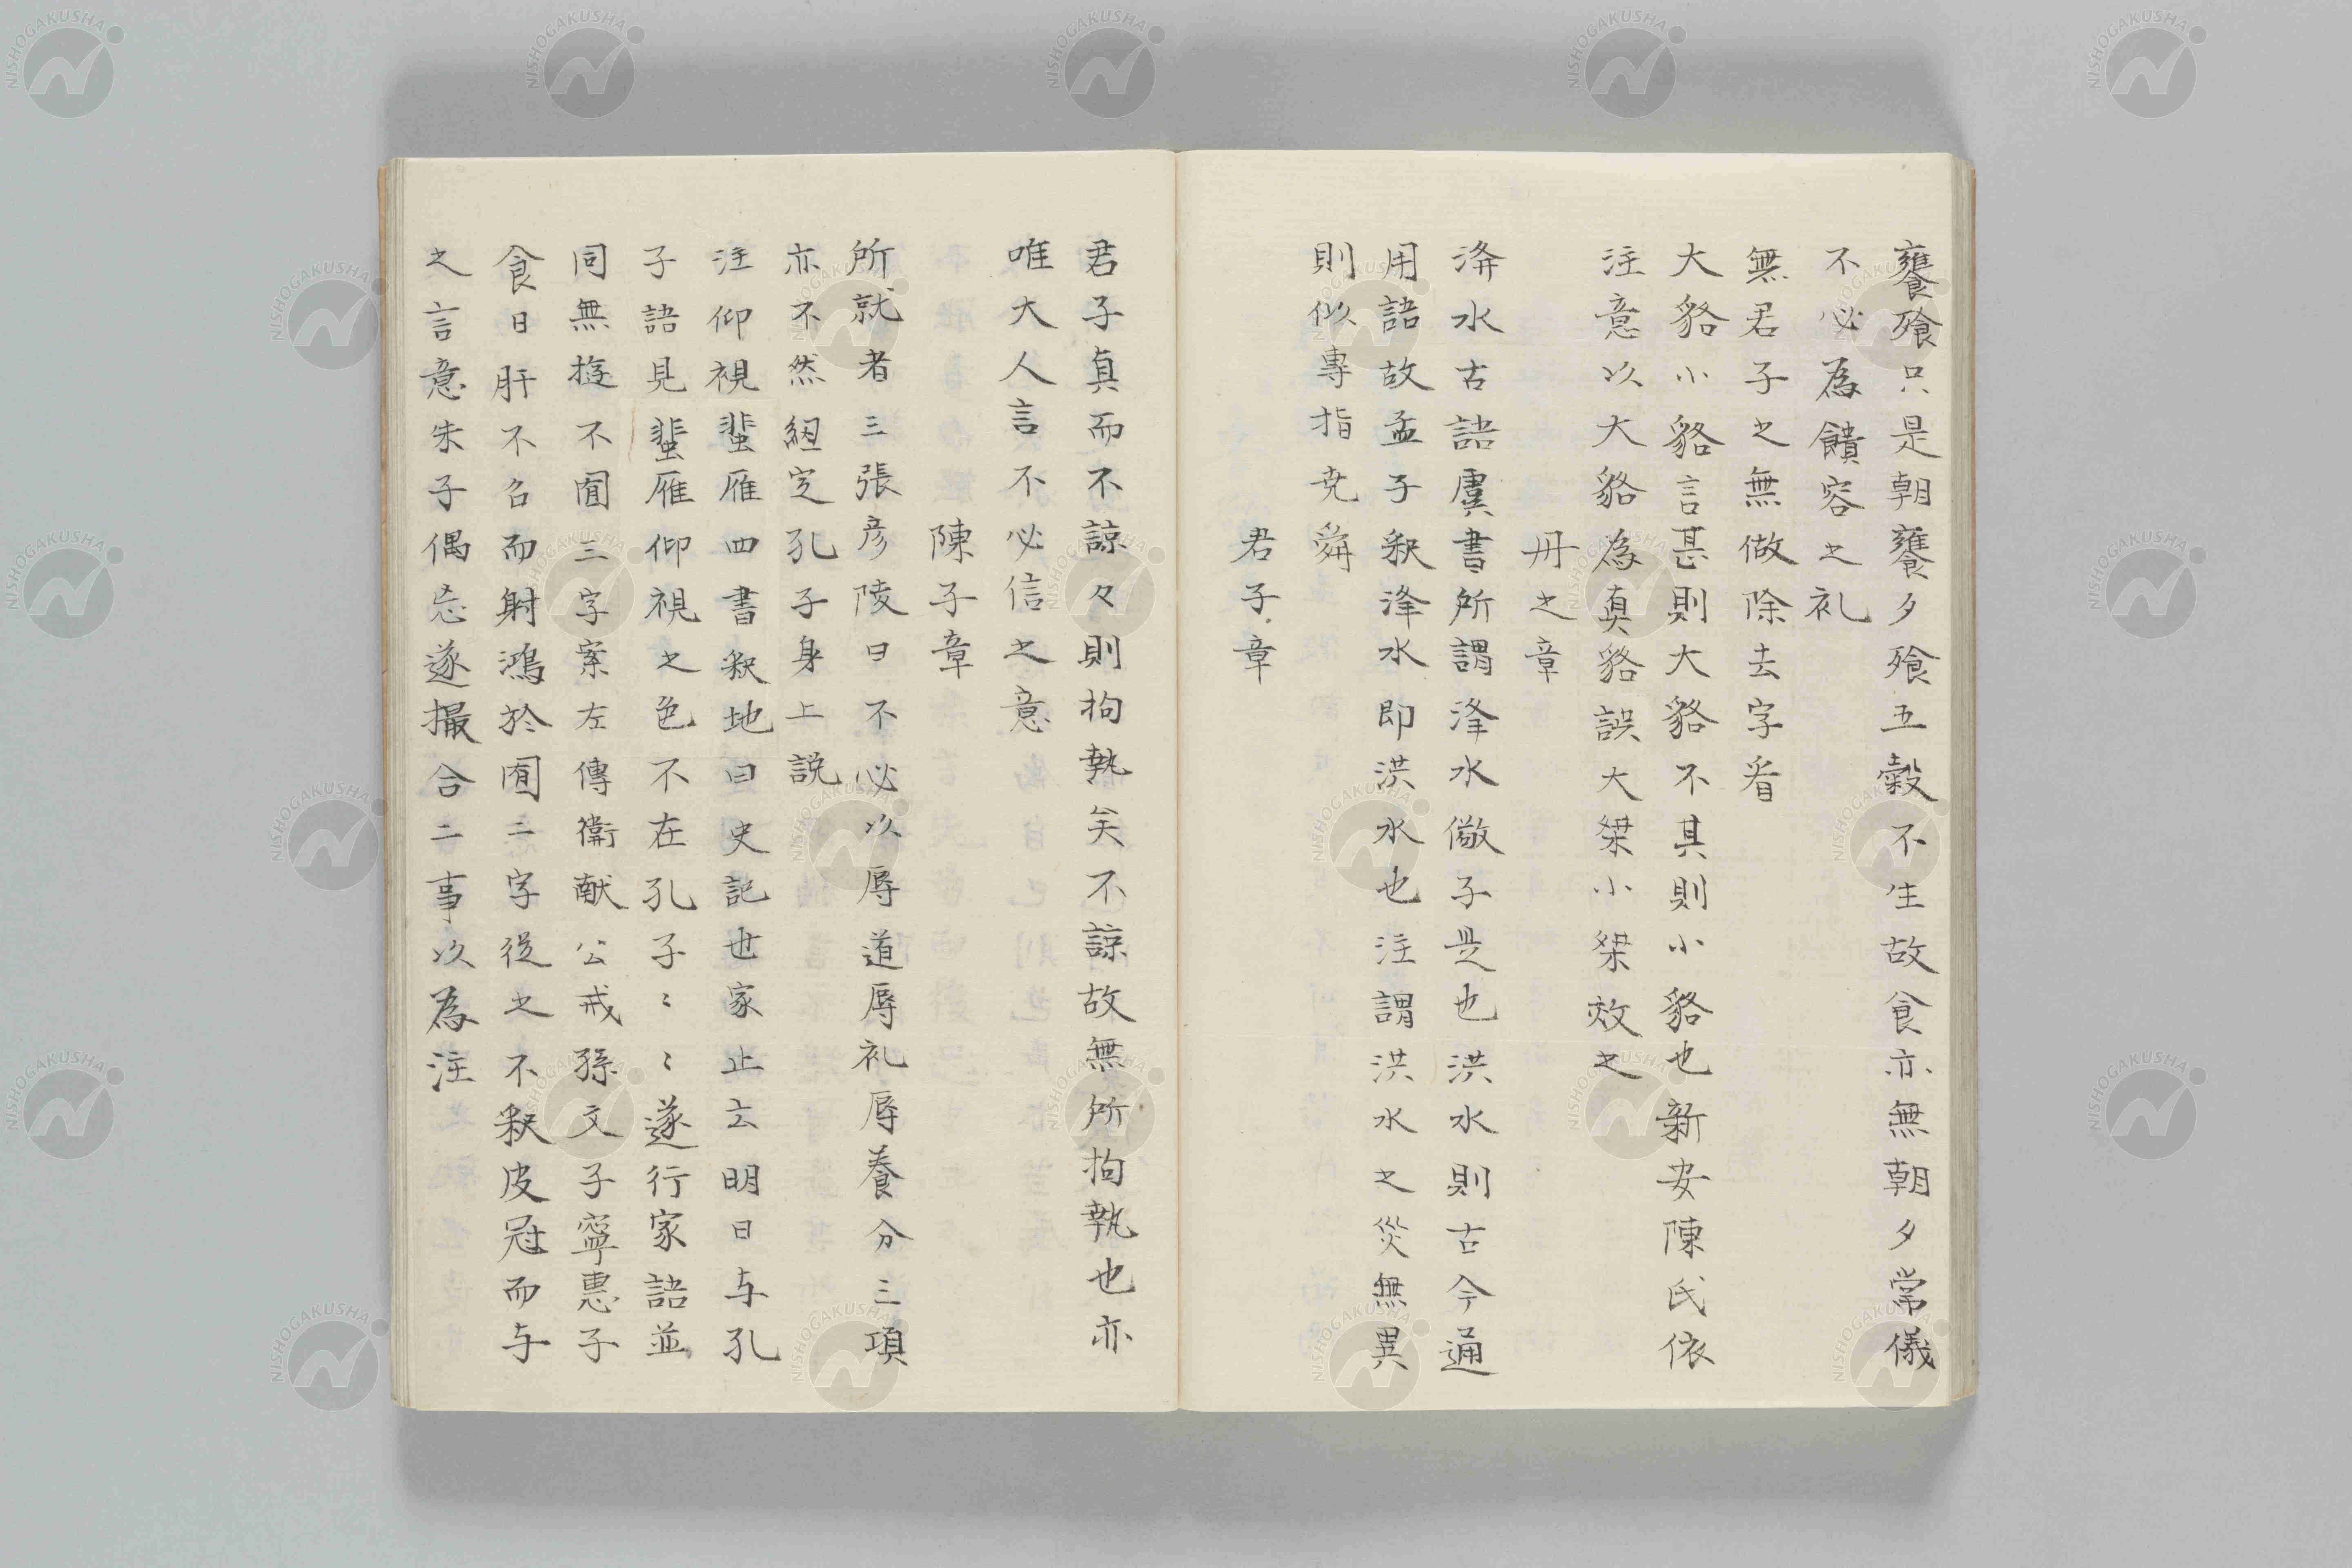 饔飱只是朝饔夕飱五穀不生故食亦無朝夕常儀
不必為饋容之礼
無君子之無做除去字看
大貉小貉言甚則大貉不其則小貉也新安陳氏依
注意以大貉為真貉誤大桀小桀效之
丹之章
洚水古語虞書所謂洚水儆予是也洪水則古今通
用語故孟子釈洚水即洪水也注謂洪水之災無異
則似專指尭舜
君子章
君子真而不諒々則拘執矣不諒故無所拘執也亦
唯大人言不必信之意
陳子章
所就者三張彦陵曰不必以辱道辱礼辱養分三項
亦不然細定孔子身上説
注仰視蜚雁四書釈地曰史記世家止云明日与孔
子語見蜚雁仰視之色不在孔子〻〻遂行家語並
同無遊不囿三字案左傳衛献公戒孫文子寧惠子
食日肝不召而射鴻於囿二字從之不釈皮冠而与
之言意朱子偶忘遂撮合二事以為注
NISHOGAKUSHA